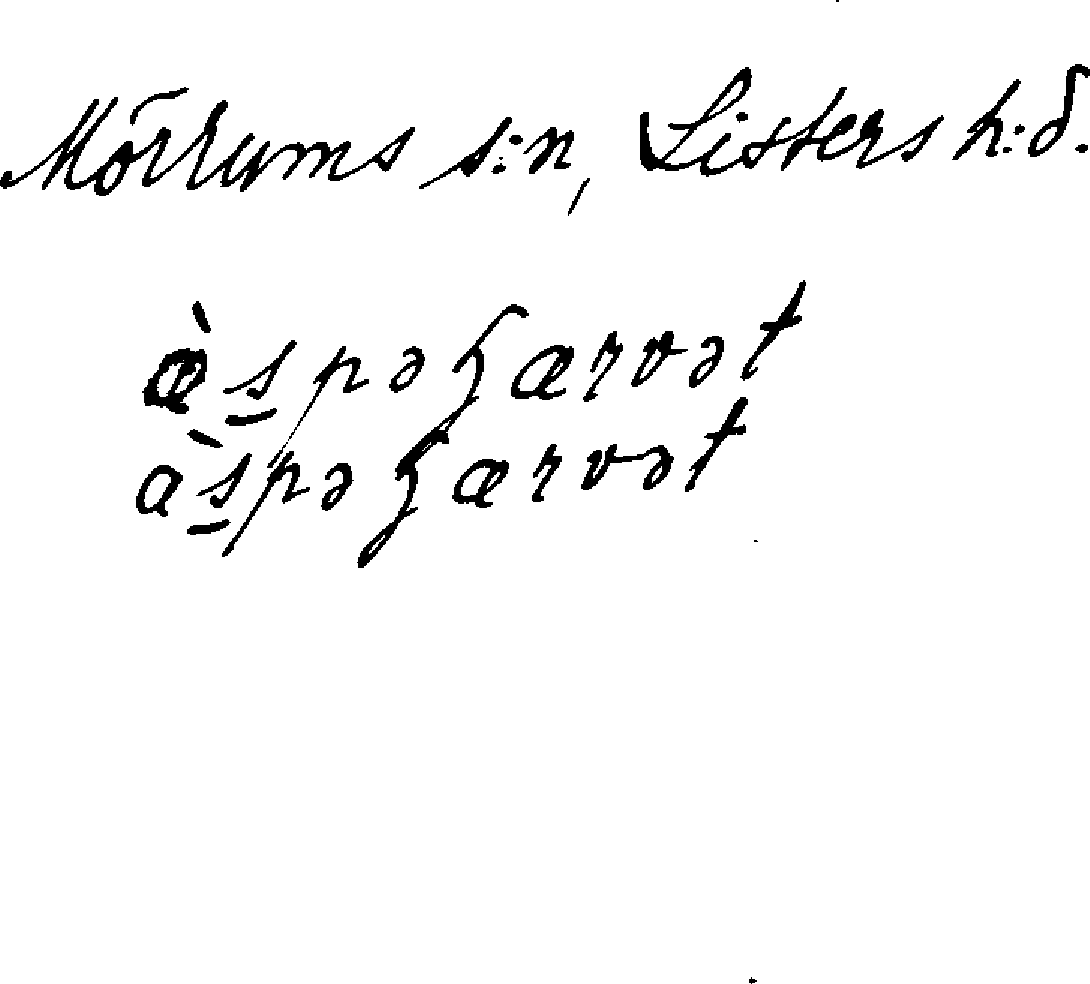 Mörrums s:n, Listers h:d.
æ̀s̲pəɧærvət
às̲pəɧærvət